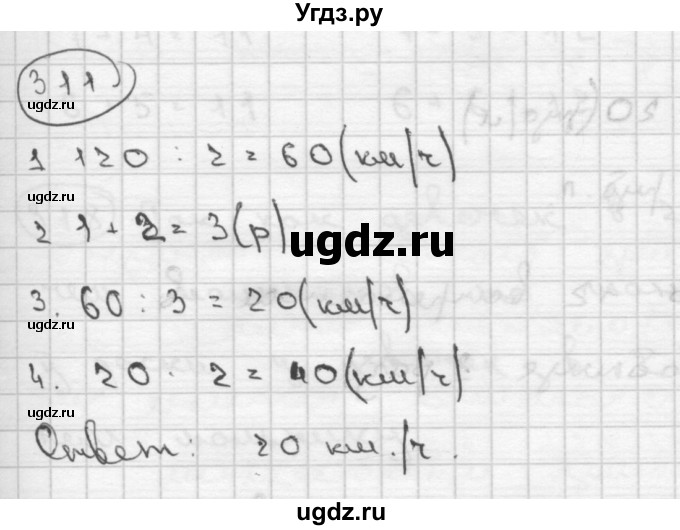 Угдз.ру
311
ugdz.ru
1 120 : 2 = 60 (км/ч)
ugdz.ru
2 1 + 2 = 3 (р)
ugdz.ru
3. 60 : 3 = 20 (км/ч)
ugdz.ru
4. 20 · 2 = 40 (км/ч)
ugdz.ru
Ответ: 20 км./ч.
ugdz.ru